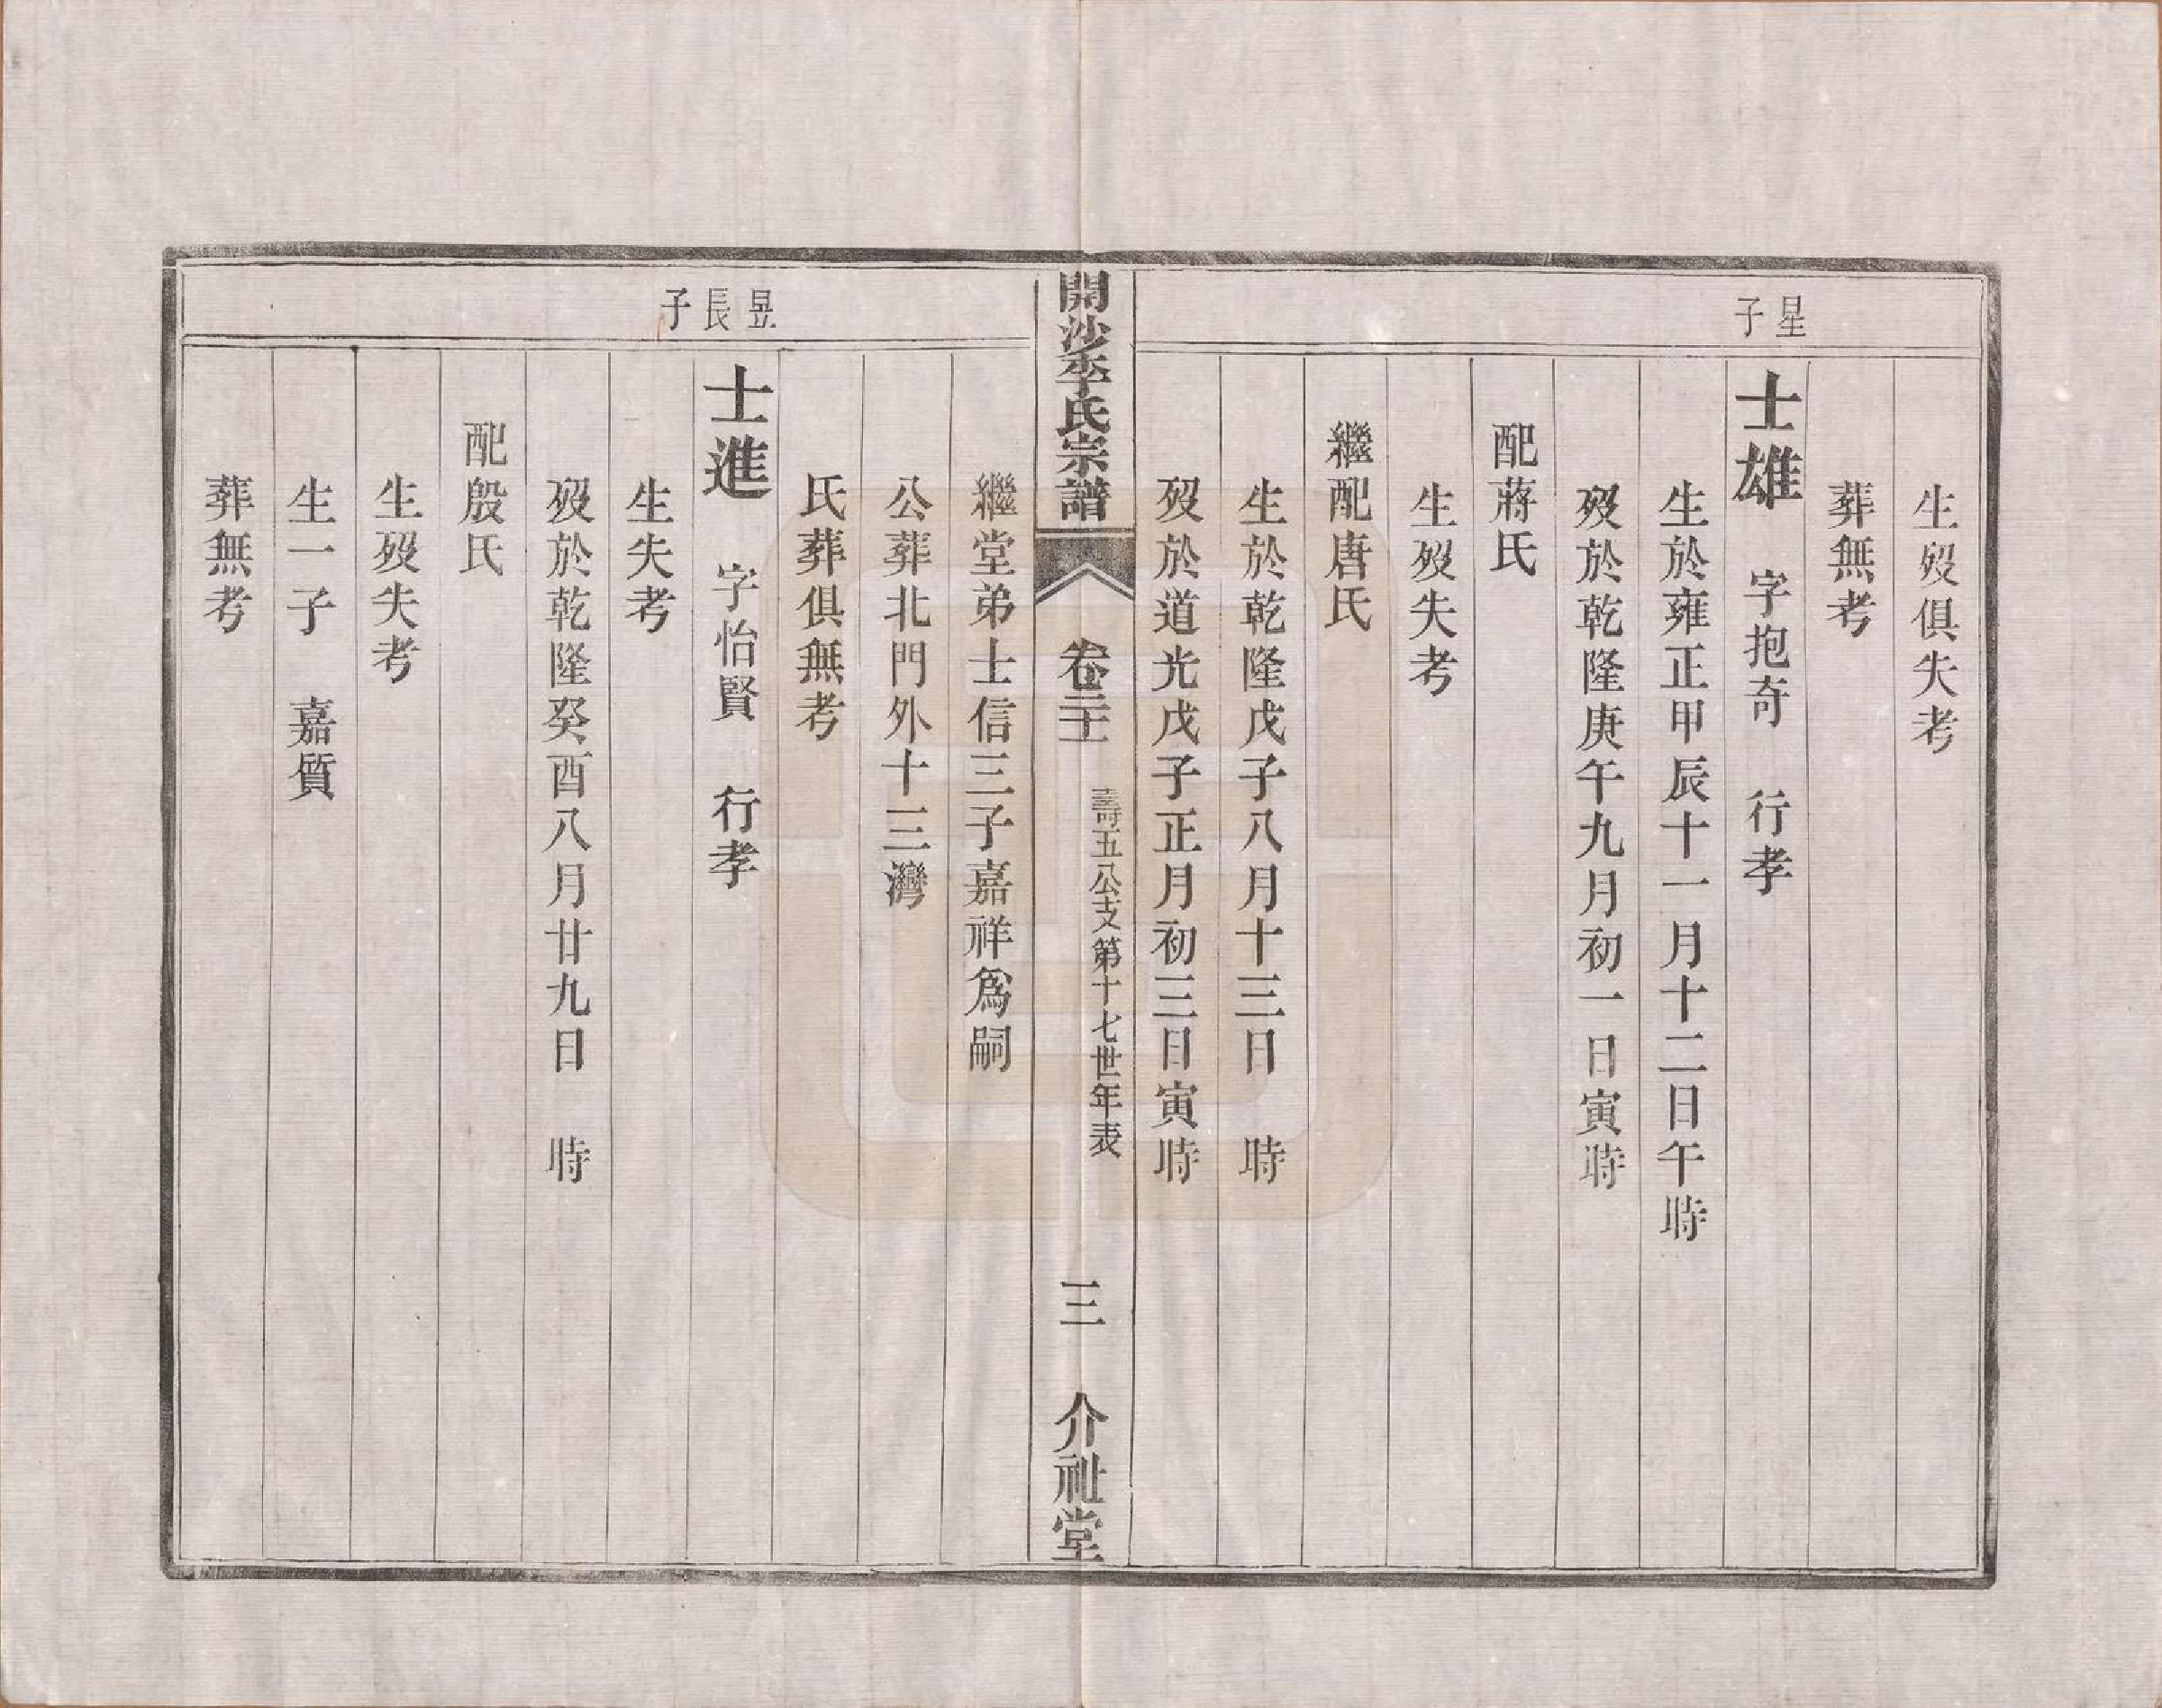 生歿俱失考
葬無考
星子
士雄 字抱奇 行孝
生於雍正甲辰十一月十二日午時
歿於乾隆庚午九月初一日寅時
配蔣氏
生歿失考
繼配唐氏
生於乾隆戊子八月十三日 時
歿於道光戊子正月初三日寅時
開沙李氏宗譜
卷二十
壽五公支第十七世年表
三
介祉堂
繼堂弟士信三子嘉祥爲嗣
公葬北門外十三灣
氏葬俱無考
昱長子
士進 字怡賢 行孝
生失考
歿於乾隆癸酉八月廿九日 時
配殷氏
生歿失考
生一子 嘉質
葬無考